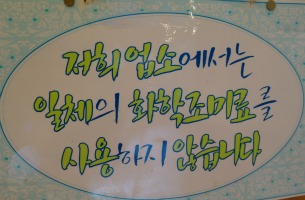 저희 업소에서는
일체의 화학죠미료를
사용하지 않습니다